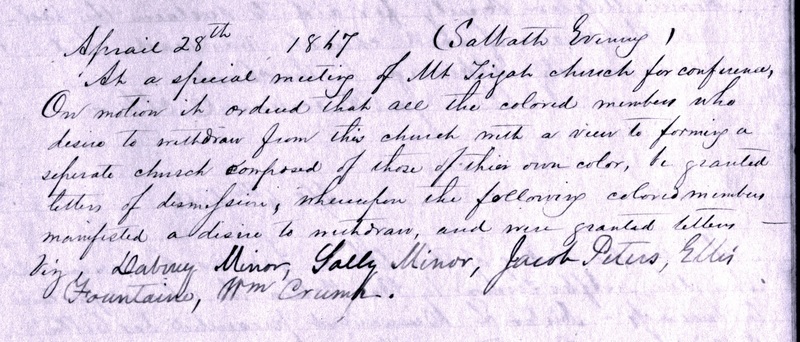 Aprail 28th 1867 (Sabbath Evening)
At a special meeting of Mt Tirzah church for conference,
On motion it ordered that all the colored members who
desire to withdraw from this church with a view to forming a
seperate church composed of those of thier own color, be granted
letters of dismission; whereupon the following colored members
manifested a desire to withdraw, and were granted letters —
Viz, Dabney Minor, Sally Minor, Jacob Peters, Ellis
Fountaine, Wm Crump.